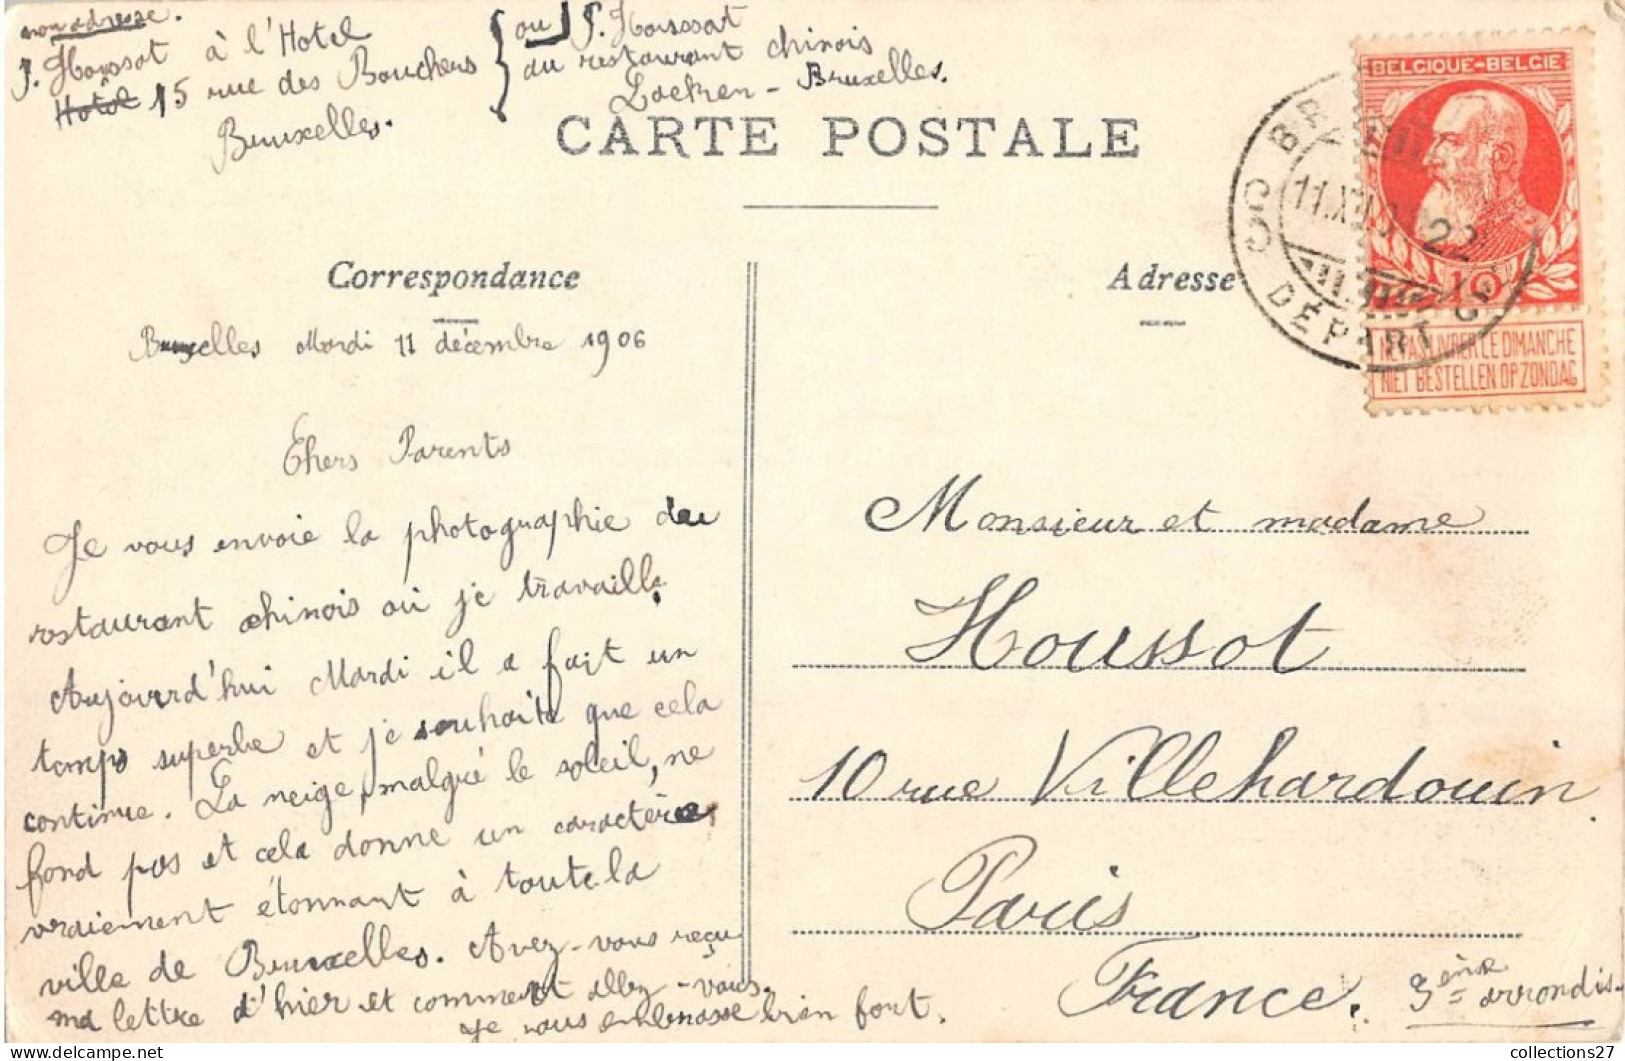 mon adresse.
J. Houssot à l'Hotel
Hotel 15 rue des Bouchers
Bruxelles.
ou J. Houssot
au restaurant chinois
Laeken - Bruxelles.
CARTE POSTALE
Correspondance
Adresse
BELGIQUE-BELGIE
10
NE PAS LIVRER LE DIMANCHE
NIET BESTELLEN OP ZONDAG
DÉPART
22
Bruxelles Mardi 11 décembre 1906
Chers Parents
Je vous envoie la photographie du
restaurant chinois où je travaille.
Aujourd'hui Mardi il a fait un
temps superbe et je souhaite que cela
continue. La neige, malgré le soleil, ne
fond pas et cela donne un caractère
vraiement étonnant à toute la
ville de Bruxelles. Avez-vous reçu
ma lettre d'hier et comment allez-vous.
Je vous embrasse bien fort.
Monsieur et madame
Houssot
10 rue Villehardouin.
Paris
France. 3ème arrondis-
collections27